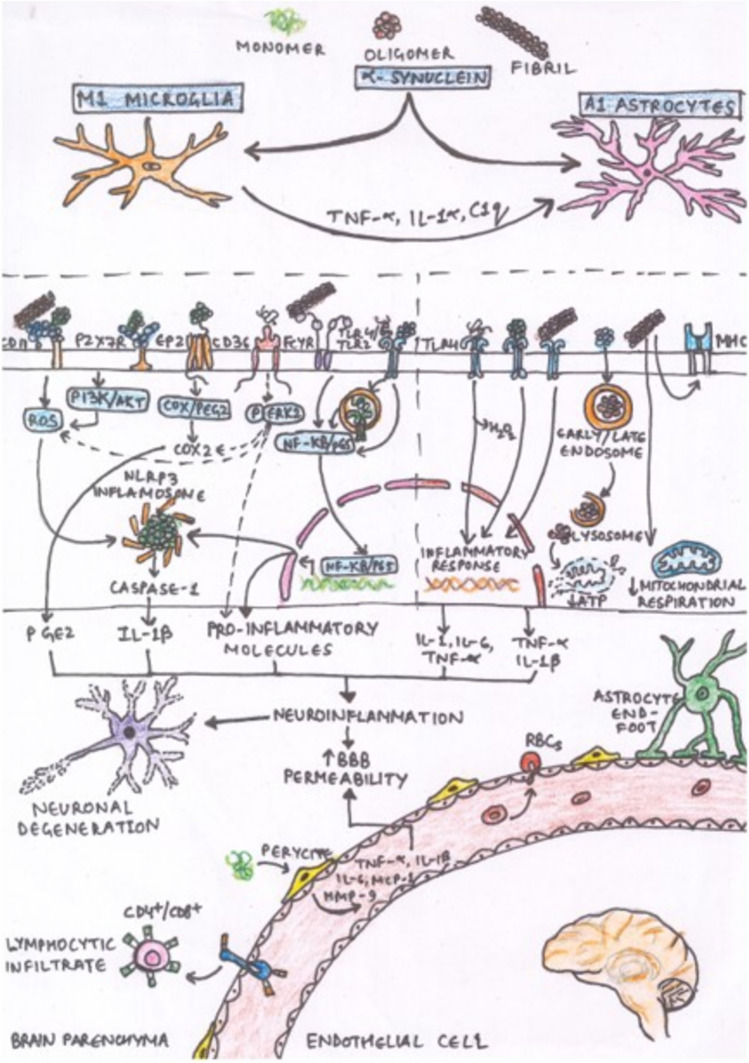 MONOMER
OLIGOMER
FIBRIL
α-SYNUCLEIN
M1 MICROGLIA
A1 ASTROCYTES
TNF-α, IL-1α, C1q
CD11
P2X7R
EP2
CD36
FCγR
TLR4/
TLR2
TLR4
MHC
ROS
PI3K/AKT
COX/PEG2
PERK2
NF-KB/P65
H2O2
EARLY/LATE
ENDOSOME
COX2 E
NLRP3
INFLAMOSONE
LYSOSOME
CASPASE-1
NF-KB/P65
INFLAMMATORY
RESPONSE
↓ATP
↓MITOCHONDRIAL
RESPIRATION
PGE2
IL-1β
PRO-INFLAMMATORY
MOLECULES
IL-1, IL-6,
TNF-α
TNF-α
IL-1β
NEUROINFLAMMATION
ASTROCYTE
END-
FOOT
↑BBB
PERMEABILITY
RBCs
NEURONAL
DEGENERATION
PERYCITE
TNF-α, IL-1β
IL-6, MCP-1
MMP-9
CD4+/CD8+
LYMPHOCYTIC
INFILTRATE
BRAIN PARENCHYMA
ENDOTHELIAL CELL